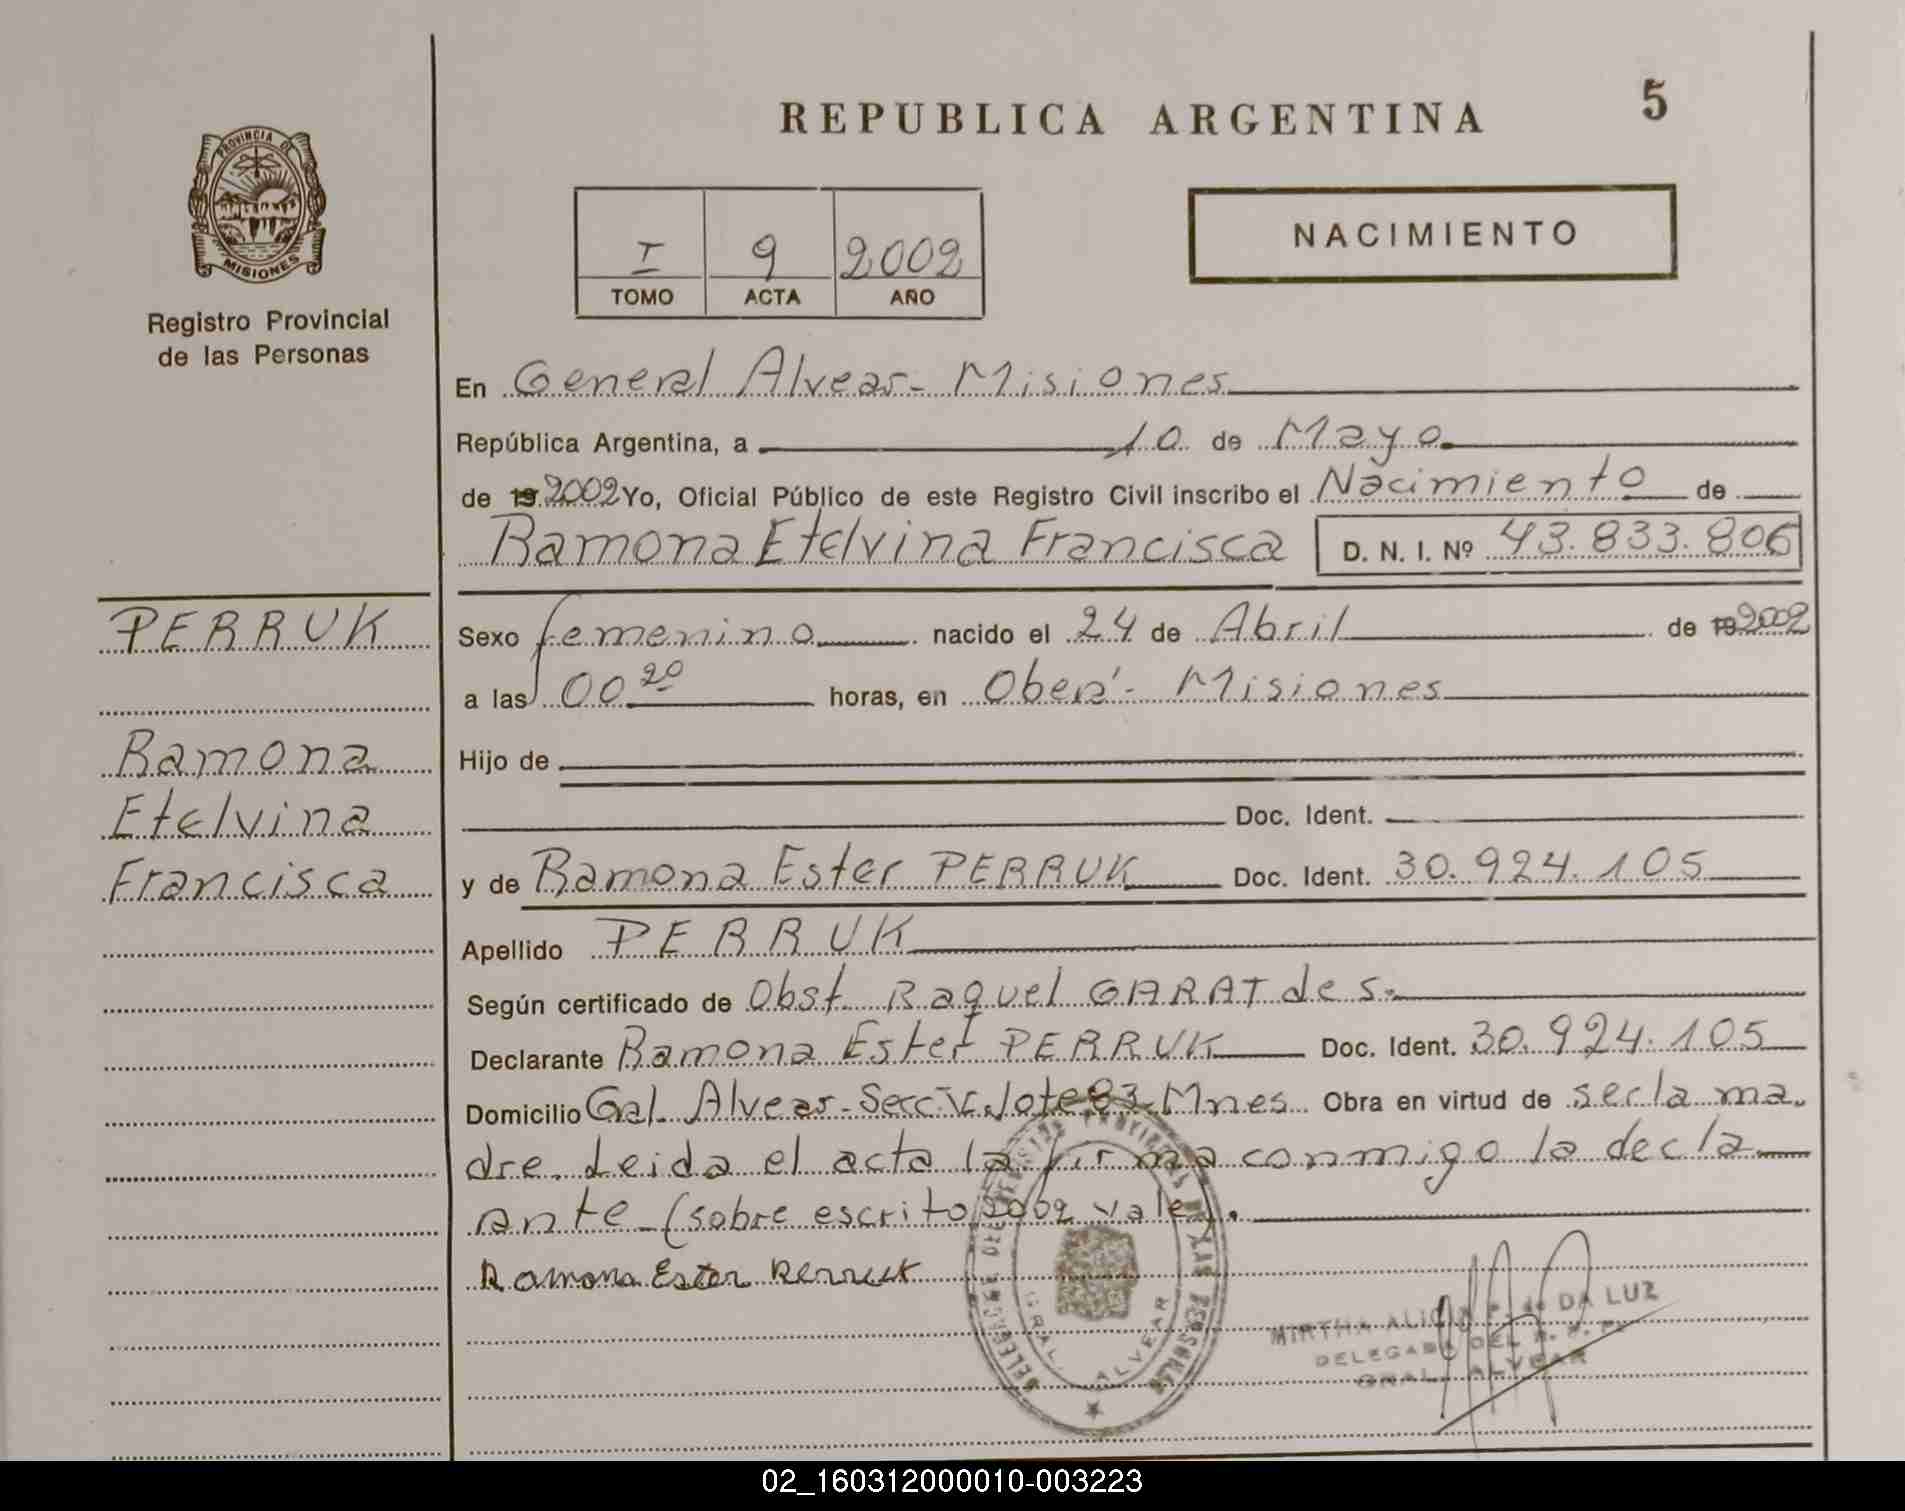 REPUBLICA ARGENTINA
5
PROVINCIA DE
MISIONES
Registro Provincial
de las Personas
I 9 2002
TOMO ACTA AÑO
NACIMIENTO
En General Alvear - Misiones
República Argentina, a 10 de Mayo
de 19 2002 Yo, Oficial Público de este Registro Civil inscribo el Nacimiento de
Ramona Etelvina Francisca D. N. I. Nº 43.833.806
PERRUK
Sexo femenino nacido el 24 de Abril de 19 2002
a las 00 20 horas, en Oberá - Misiones
Ramona
Hijo de
Etelvina
Doc. Ident.
Francisca
y de Ramona Ester PERRUK Doc. Ident. 30.924.105
Apellido PERRUK
Según certificado de Obst. Raquel GARAT de S.
Declarante Ramona Ester PERRUK Doc. Ident. 30.924.105
Domicilio Gral. Alvear - Secc. lote 83 - Mnes. Obra en virtud de ser la ma
dre. Leida el acta la firma conmigo la decla
ante (sobre escrito 2002 vale).
Ramona Ester Perruk
GRAL. ALVEAR
MIRTHA ALICIA de DA LUZ
DELEGADA DEL R. P. P.
GRAL. ALVEAR
02_160312000010-003223